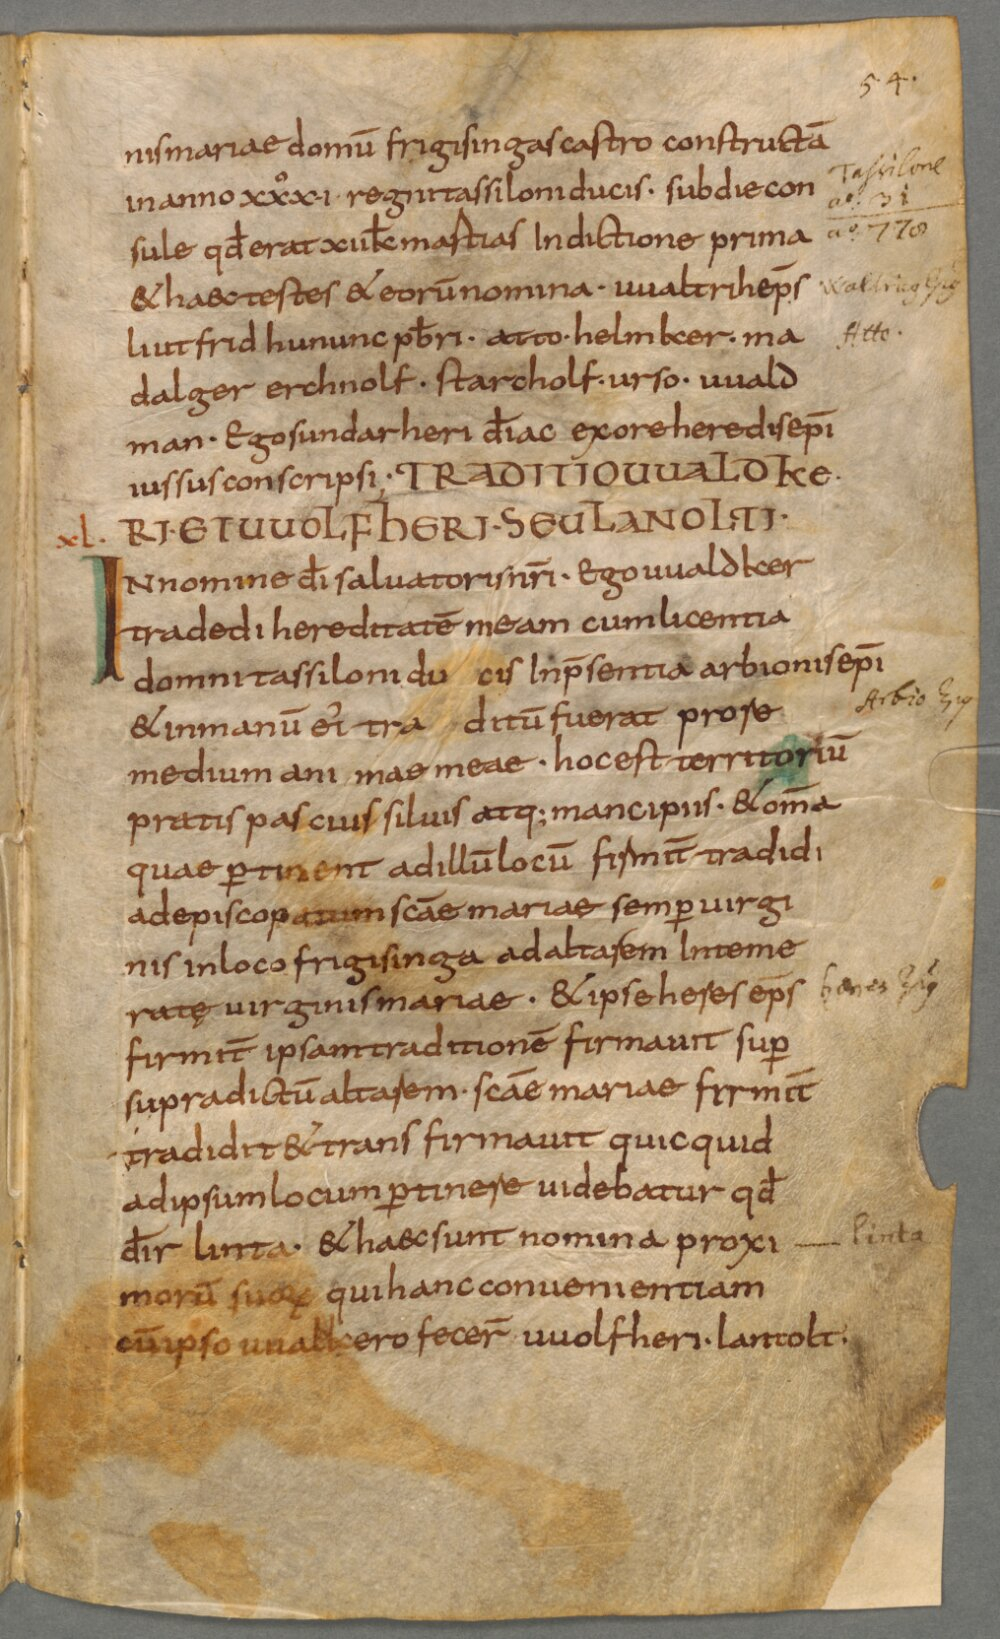 54.
nismariae domū frigisingas castro constructā
in anno xxx·i· regni tassiloni ducis· sub die con
sule qđ erat xui k mastias Indictione prima
& haec testes & eorū nomina· uualtrih ep̄s
liutfrid hununc pƀri· atto· helmker· ma
dalger erchnolf· starcholf· urso· uuald
man· Ego sundarheri điac ex ore heredis ep̄i
iussus conscripsi;· TRADITIO UUALDKE
RI· ET UUOLFHERI· SEU LANOLTI·
xl.
IN nomine đi saluatoris nr̄i· Ego uualdker
tradedi hereditatē meam cum licentia
domni tassiloni du cis In p̄sentia arbionis ep̄i
& in manū ei tra ditū fuerat pro se
medium ani mae meae· hoc est territoriū
pratis pascuis siluis atq; mancipiis· & om̄a
quae ptinent ad illū locū firmit̄ tradidi
ad episcopatum scāe mariae semp uirgi
nis in loco frigisinga ad altarem Inteme
ratę uirginis mariae· & ipse heres ep̄s
firmit̄ ipsam traditionē firmauit sup
supradictū altarem· scāe mariae firmit̄
tradidit & transfirmauit quicquid
ad ipsum locum ptinere uidebatur qđ
đir linta· & haec sunt nomina proxi
morū suoꝝ qui hanc conuenientiam
cū ipso uualkero fecer̄ uuolfheri· lantolt·
Tassilone
aº. 31
aº. 778
Atto.
Arbio
heres
Linta